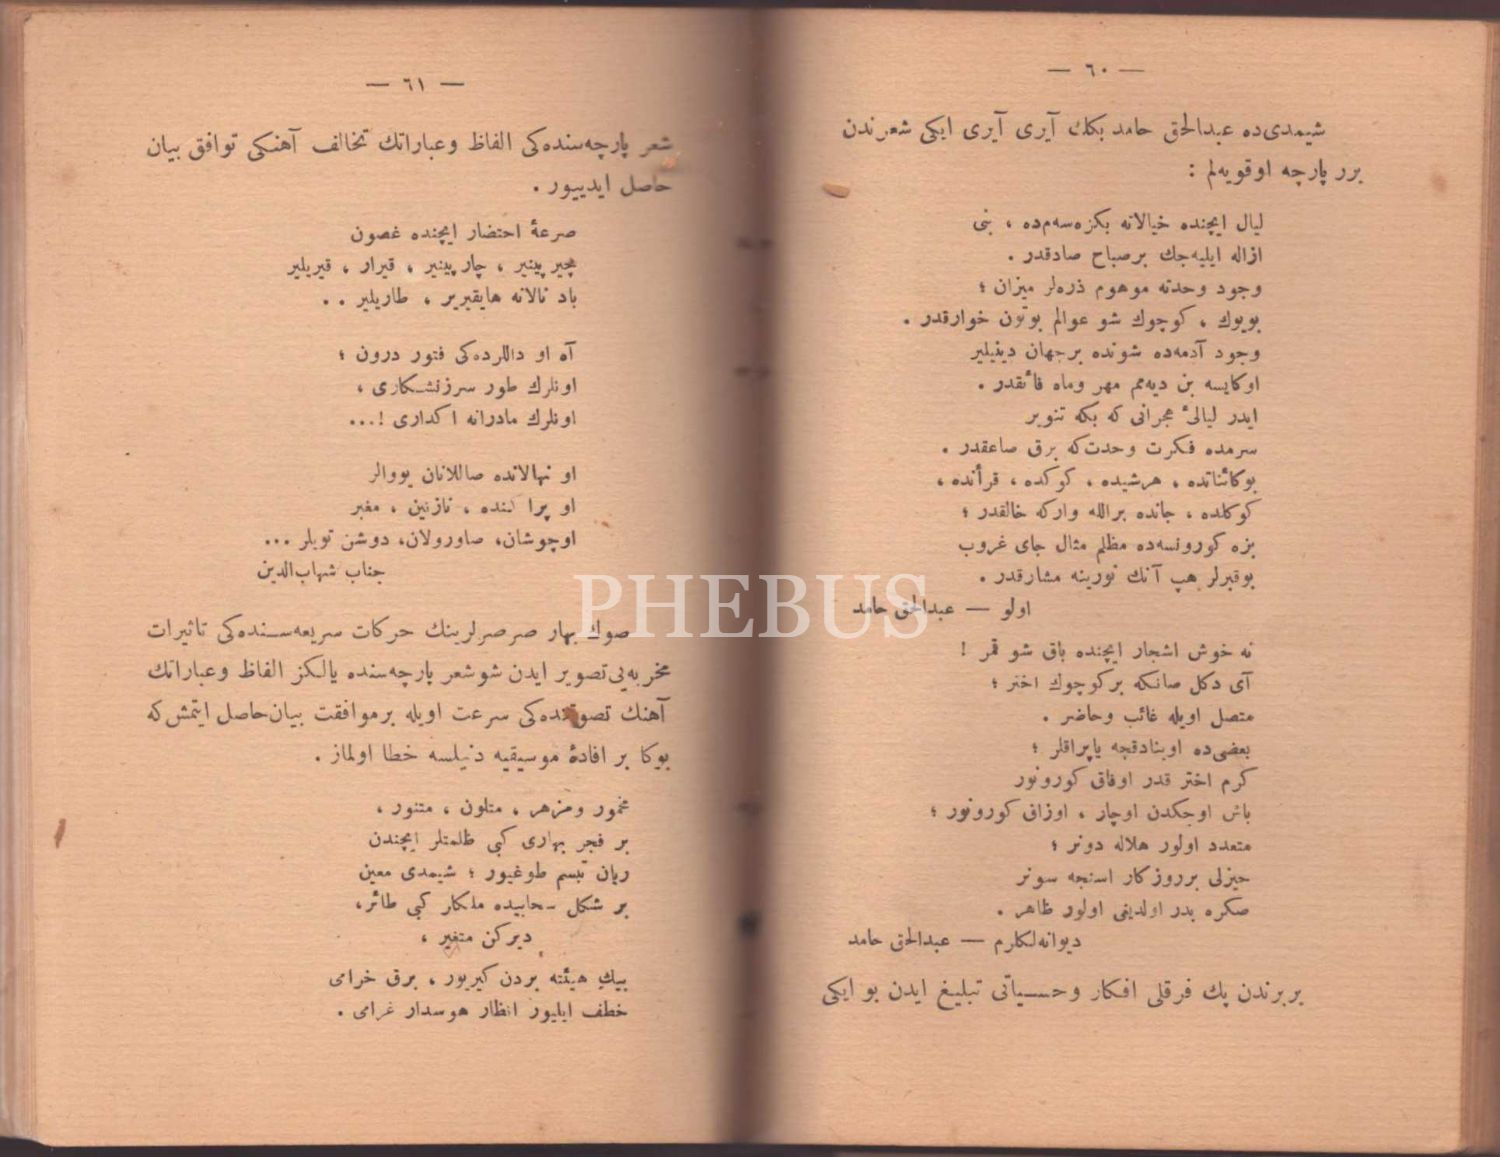 — ٦٠ —
شیمدی‌ده عبدالحق حامد بكك آیری آیری ایكی شعرندن
برر پارچه اوقویه‌لم :
لیال ایچنده خیالاته بكزه‌سه‌م‌ده ، بنی
ازاله ایلیه‌جك برصباح صادقدر .
وجود وحدته موهوم ذره‌لر میزان ؛
بویوك ، كوچوك شو عوالم بوتون خوارقدر .
وجود آدمه‌ده شونده برجهان دینیلیر
اوكایسه بن دیه‌مم مهر وماه فائقدر .
ایدر لیالیٔ هجرانی كه بكه تنویر
سرمده فكرت وحدت‌كه برق صاعقدر .
بوكائناتده ، هرشیده ، كوكده ، قرأنده ،
كوكلده ، جانده برالله واركه خالقدر ؛
بزه كورونسه‌ده مظلم مثال جای غروب
بوقبرلر هپ آنك نورینه مشارقدر .
اولو — عبدالحق حامد
نه خوش اشجار ایچنده باق شو قمر !
آی دكل صانكه بركوچوك اختر ؛
متصل اویله غائب وحاضر .
بعضی‌ده اوینادقجه یاپراقلر ؛
كرم اختر قدر اوفاق كورونور
باش اوجكدن اوچار ، اوزاق كورونور ؛
متعدد اولور هلاله دونر ؛
حیزلی برروزكار اسنجه سونر
صكره بدر اولدیغی اولور ظاهر .
دیوانه‌لكلرم — عبدالحق حامد
بربرندن پك فرقلی افكار وحسیاتی تبلیغ ایدن بو ایكی
— ٦١ —
شعر پارچه‌سنده‌كی الفاظ وعباراتك تخالف آهنكی توافق بیان
حاصل ایدییور .
صرعهٔ احتضار ایچنده غصون
چیرپینیر ، چارپینیر ، قیرار ، قیریلیر
باد نالانه هایقیریر ، طاریلیر . .
آه او داللرده‌كی فتور درون ؛
اونلرك طور سرزنشكاری ،
اونلرك مادرانه اكداری !...
او نهالانده صاللانان یووالر
او ، نازنین ، مغبر
اوچوشان، صاورولان، دوشن تویلر ...
جناب شهاب‌الدین
صوك بهار صرصرلرینك حركات سریعه‌سنده‌كی تاثیرات
مخربه‌یی تصویر ایدن شو شعر پارچه‌سنده یالكز الفاظ وعباراتك
آهنك تصوتنده‌كی سرعت اویله برموافقت بیان حاصل ایتمش كه
بوكا بر افادهٔ موسیقیه دنیلسه خطا اولماز .
مخمور ومزهر ، متلون ، متنور ،
بر فجر بهاری كبی ظلمتلر ایچندن
ریان تبسم طوغیور ؛ شیمدی معین
بر شكل سحابیده ملكلر كبی طائر،
دیركن متغیر ،
بیك هیئته بردن كیریور ، برق خرامی
خطف ایلیور انظار هوسدار غرامی .
PHEBUS